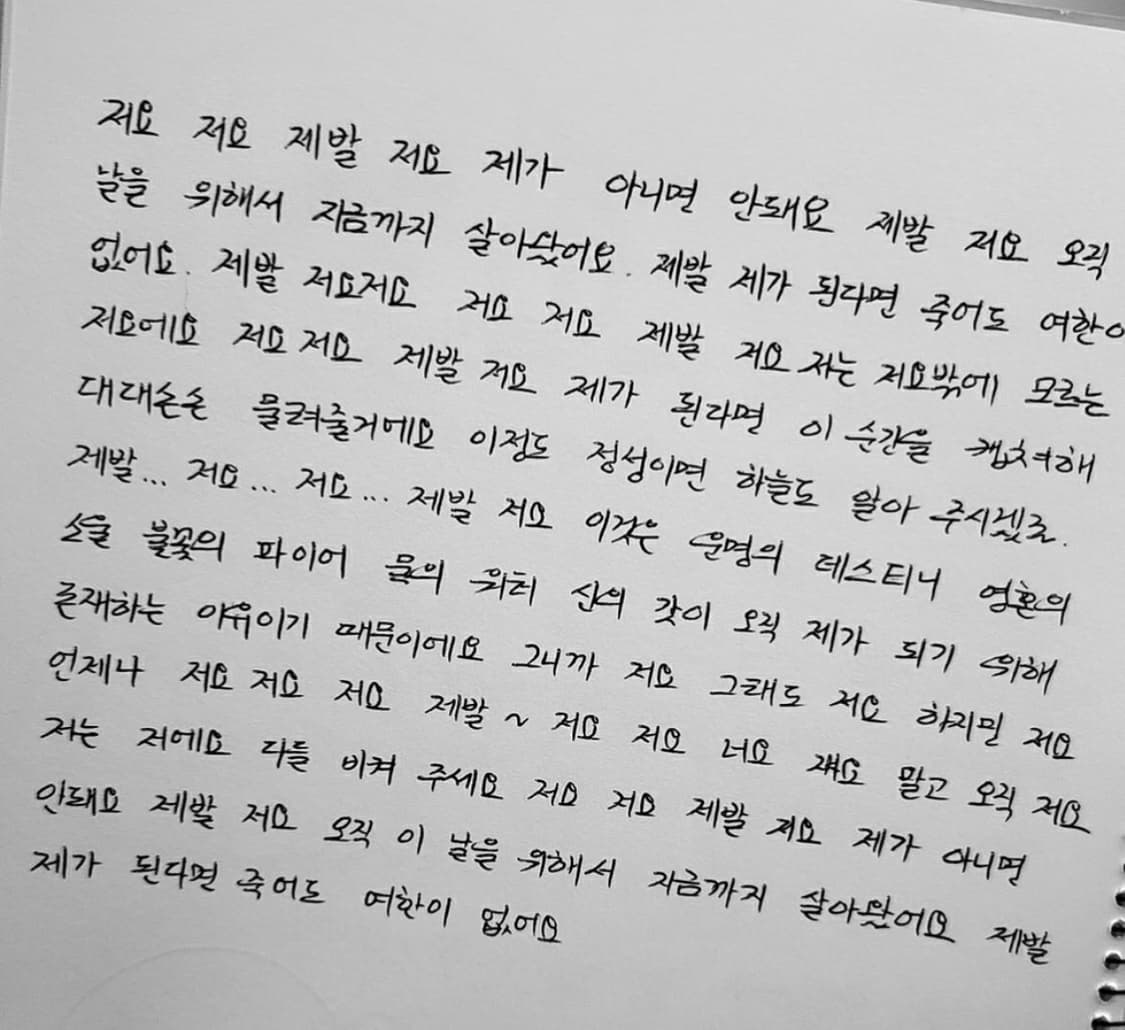 저요 저요 제발 저요 제가 아니면 안돼요 제발 저요 오직
날을 위해서 지금까지 살아왔어요. 제발 제가 된다면 죽어도 여한이
없어요. 제발 저요저요 저요 저요 제발 저요 저는 저요밖에 모르는
저요에요 저요 저요 제발 저요 제가 된다면 이 순간을 캡쳐해
대대손손 물려줄거에요 이정도 정성이면 하늘도 알아 주시겠죠.
제발... 저요... 저요... 제발 저요 이것은 운명의 데스티니 영혼의
소울 불꽃의 파이어 물의 워터 신의 갓이 오직 제가 되기 위해
존재하는 이유이기 때문이에요 그니까 저요 그래도 저요 하지민 저요
언제나 저요 저요 저요 제발 ~ 저요 저요 너요 쟤요 말고 오직 저요
저는 저에요 다들 비켜 주세요 저요 저요 제발 저요 제가 아니면
안돼요 제발 저요 오직 이 날을 위해서 지금까지 살아왔어요 제발
제가 된다면 죽어도 여한이 없어요